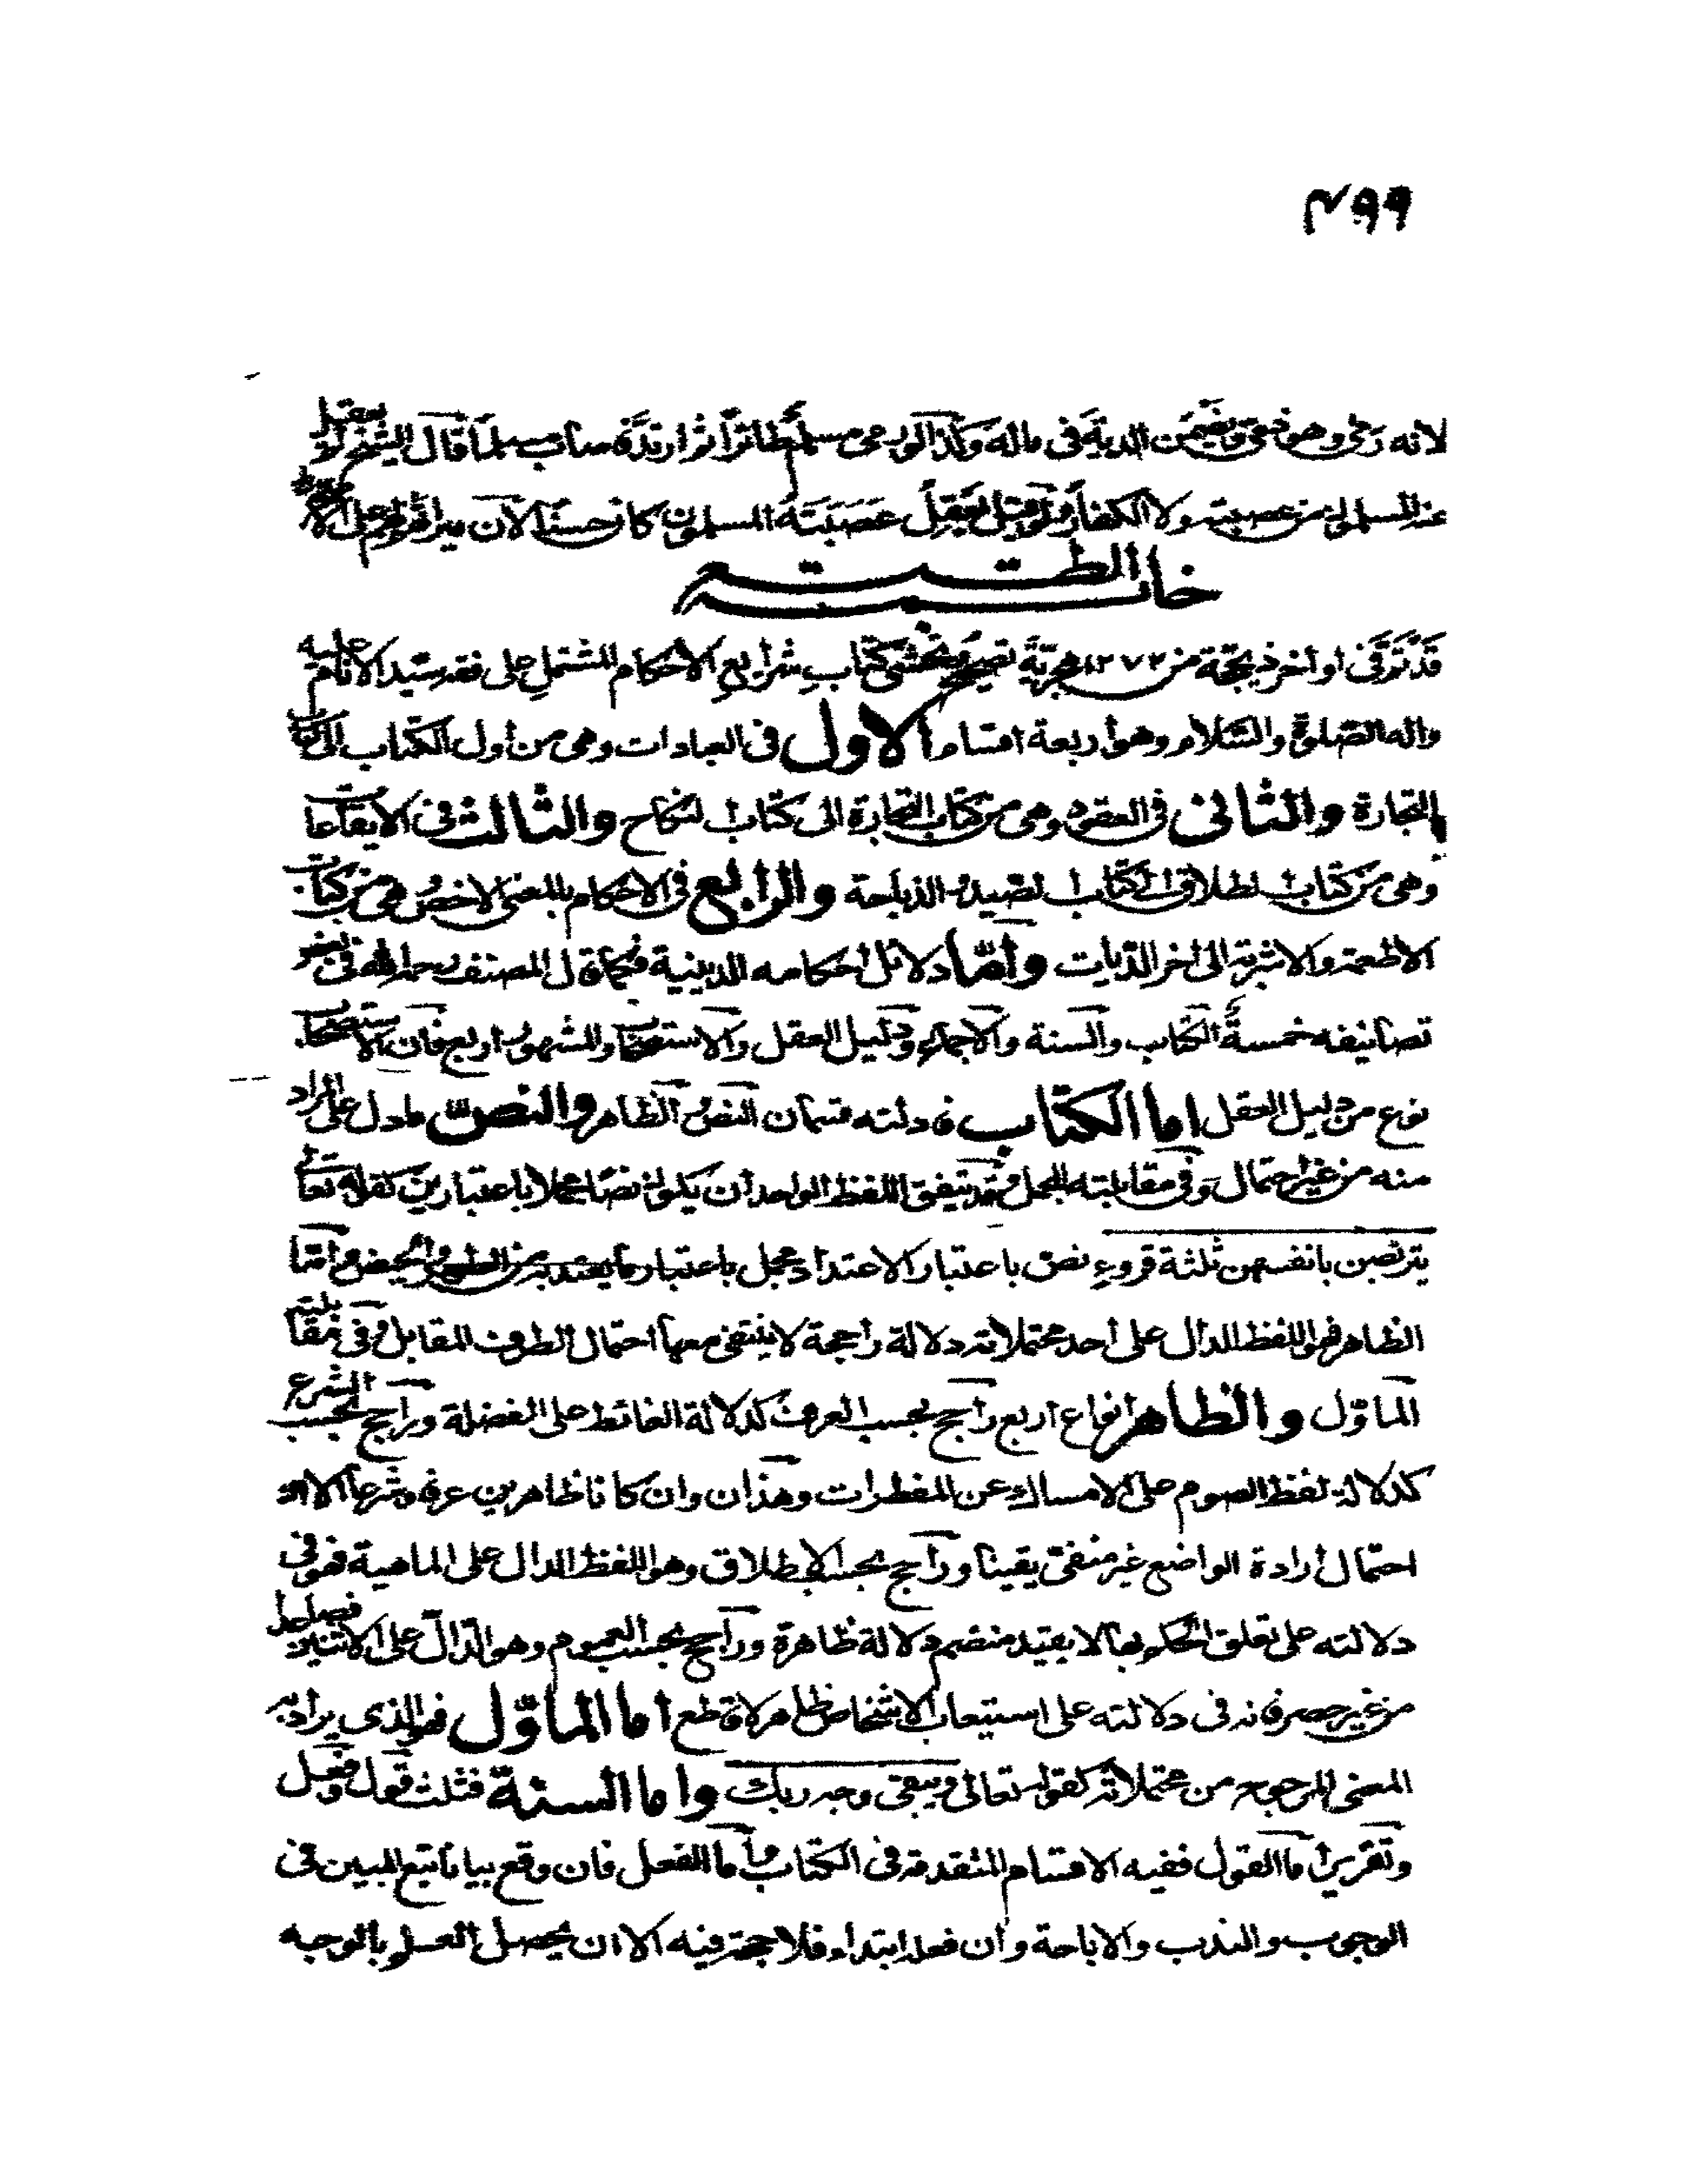 ٤٩٩
لانه رمى وهو ذمى ويضمن الدية فى ماله وكذا لو رمى مسلم طائرا ثم ارتد فاصاب مسلما قال الشيخ لا يعقل
عنه المسلمون من عصبته ولا الكفار ولو قيل يعقل عصبته المسلمون كان حسنا لان ميراثه لهم على الاصح
خاتمة الطبع
قد تم فى اواخر ذيحجة من ١٢٧٣ هجرية تصحيح وتحشى كتاب شرايع الاحكام المشتمل على فقه سيد الانام عليه
واله الصلوة والسلام وهو أربعة اقسام الاول فى العبادات وهى من أول الكتاب الى كتاب
التجارة والثانى فى العقود وهى من كتاب التجارة الى كتاب النكاح والثالث فى الايقاعات
وهى من كتاب الطلاق الى كتاب الصيد والذباحة والرابع فى الاحكام بالمعنى الاخص وهى من كتاب
الاطعمة والاشربة الى اخر الديات واما دلائل احكامه الدينية فكما قال المصنف رحمه الله فى بعض
تصانيفه خمسة الكتاب والسنة والاجماع ودليل العقل والاستصحاب والمشهور اربع فان الاستصحاب
نوع من دليل العقل اما الكتاب فادلته قسمان النص والظاهر والنص ما دل على المراد
منه من غير احتمال وفى مقابلته المجمل وقد يتفق اللفظ الواحد أن يكون نصا مجملا باعتبارين كقوله تعالى
يتربصن بانفسهن ثلثة قروء نص باعتبار الاعتداد مجمل باعتبار ما يعتد به من الطهر والحيض واما
الظاهر فهو اللفظ الدال على أحد محتملاته دلالة راجحة لا ينتفى معها احتمال الطرف المقابل وفى مقابلته
الماؤل والظاهر انواع اربع راجح بحسب العرف كدلالة الغائط على الفضلة وراجح بحسب الشرع
كدلالة لفظ الصوم على الامساك عن المفطرات وهذان وان كانا ظاهرين عرفا وشرعا الا ان
احتمال أرادة الواضع غير منفى يقينا وراجح بحسب الاطلاق وهو اللفظ الدال على الماهية فهو فى
دلالته على تعلق الحكم بها لا بقيد منضم دلالة ظاهرة وراجح بحسب العموم وهو الدال على الاثنين فصاعدا
من غير حصر فانه فى دلالته على استيعاب الاشخاص ظاهر لا قاطع اما الماؤل فهو الذى يراد به
المعنى المرجوح من محتملاته كقوله تعالى ويبقى وجه ربك واما السنة فثلث قول وفعل
وتقرير اما القول ففيه الاقسام المتقدمة فى الكتاب وأما الفعل فان وقع بيانا تبع المبين فى
الوجوب والندب والاباحة وان فعله ابتداء فلا حجة فيه الا ان يحصل العلم بالوجه